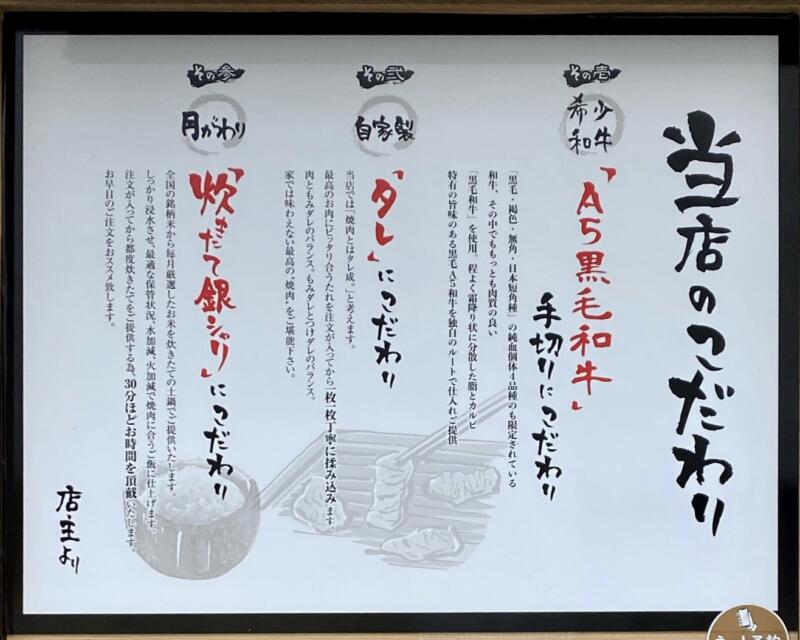 当店のこだわり
その壱
希少
和牛
「A5黒毛和牛」
手切りにこだわり
「黒毛・褐色・無角・日本短角種」の純血個体4品種のも限定されている
和牛、その中でももっとも肉質の良い
「黒毛和牛」を使用。程よく霜降り状に分散した脂とカルビ
特有の旨味のある黒毛A5和牛を独自のルートで仕入れご提供
その弐
自家製
「タレ」にこだわり
当店では「焼肉とはタレ成。」と考えます。
最高のお肉にピッタリ合うたれを注文が入ってから一枚一枚丁寧に揉み込みます。
肉ともみダレのバランス。もみダレとつけダレのバランス。
家では味わえない最高の"焼肉"をご堪能下さい。
その参
月がわり
「炊きたて銀シャリ」にこだわり
全国の銘柄米から毎月厳選したお米を炊きたての土鍋でご提供いたします。
しっかり浸水させ、最適な保管状況、水加減、火加減で焼肉に合うご飯に仕上げます。
注文が入ってから都度炊きたてをご提供する為、30分ほどお時間を頂戴いたします。
お早目のご注文をおススメ致します。
店主より
ネット予約